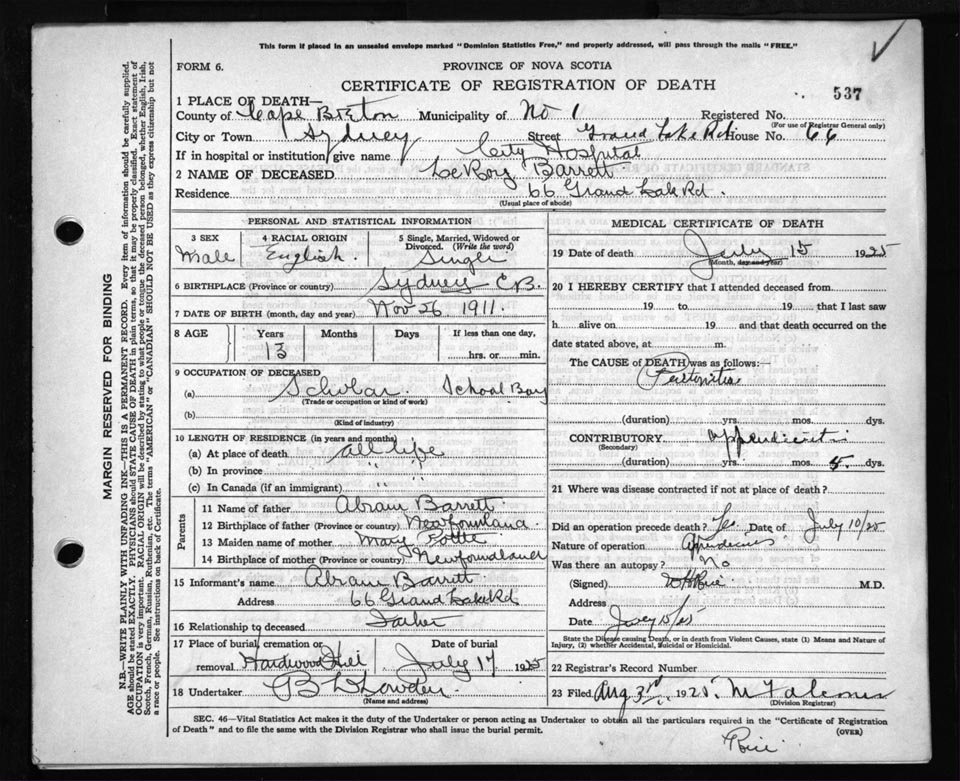 This form if placed in an unsealed envelope marked "Dominion Statistics Free," and properly addressed, will pass through the mails "FREE."
FORM 6.
PROVINCE OF NOVA SCOTIA
CERTIFICATE OF REGISTRATION OF DEATH
537
1 PLACE OF DEATH—
County of Cape Breton Municipality of No 1 Registered No.
(For use of Registrar General only)
City or Town Sydney Street Grand Lake Rd House No. 66
If in hospital or institution, give name City Hospital
2 NAME OF DECEASED LeRoy Barrett
Residence 66 Grand Lake Rd.
(Usual place of abode)
PERSONAL AND STATISTICAL INFORMATION
3 SEX Male
4 RACIAL ORIGIN English.
5 Single, Married, Widowed or Divorced. (Write the word) Single
6 BIRTHPLACE (Province or country) Sydney C.B.
7 DATE OF BIRTH (month, day and year) Nov 26 1911.
8 AGE Years 13 Months Days If less than one day, hrs. or min.
9 OCCUPATION OF DECEASED
(a) Scholar School Boy
(Trade or occupation or kind of work)
(b)
(Kind of industry)
10 LENGTH OF RESIDENCE (in years and months)
(a) At place of death all life
(b) In province " "
(c) In Canada (if an immigrant) " "
Parents
11 Name of father Abram Barrett
12 Birthplace of father (Province or country) Newfounland.
13 Maiden name of mother Mary
14 Birthplace of mother (Province or country)
15 Informant's name Abram Barrett
Address 66 Grand Lake Rd
16 Relationship to deceased Father
17 Place of burial, cremation or removal Hardwood Hill
Date of burial July 17 1925
18 Undertaker
(Name and address)
MEDICAL CERTIFICATE OF DEATH
19 Date of death July 15 1925
(Month, day and year)
20 I HEREBY CERTIFY that I attended deceased from
19 to 19 that I last saw
h alive on 19 and that death occurred on
date stated above, at m.
The CAUSE OF DEATH was as follows:
Peritonitis
(duration) yrs. mos. dys.
CONTRIBUTORY appendicitis
(Secondary)
(duration) yrs. mos. 5. dys.
21 Where was disease contracted if not at place of death?
Did an operation precede death? Yes Date of July 10/25
Nature of operation
Was there an autopsy? No
(Signed) M.D.
Address
Date
State the Disease causing Death, or in death from Violent Causes, state (1) Means and Nature of Injury, (2) whether Accidental, Suicidal or Homicidal.
22 Registrar's Record Number
23 Filed Aug 3rd 1925.
(Division Registrar)
SEC. 46—Vital Statistics Act makes it the duty of the Undertaker or person acting as Undertaker to obtain all the particulars required in the "Certificate of Registration
of Death" and to file the same with the Division Registrar who shall issue the burial permit.
(OVER)
MARGIN RESERVED FOR BINDING
N.B.—WRITE PLAINLY WITH UNFADING INK—THIS IS A PERMANENT RECORD. Every item of information should be carefully supplied.
AGE should be stated EXACTLY. PHYSICIANS should STATE CAUSE OF DEATH in plain terms, so that it may be properly classified. Exact statement of
OCCUPATION is very important. RACIAL ORIGIN will be described by stating to what people or tongue the deceased person belonged, whether English, Irish,
Scotch, French, German, Russian, Ruthenian, etc. The terms "AMERICAN" or "CANADIAN" SHOULD NOT BE USED as they express citizenship but not
a race or people. See instructions on back of Certificate.